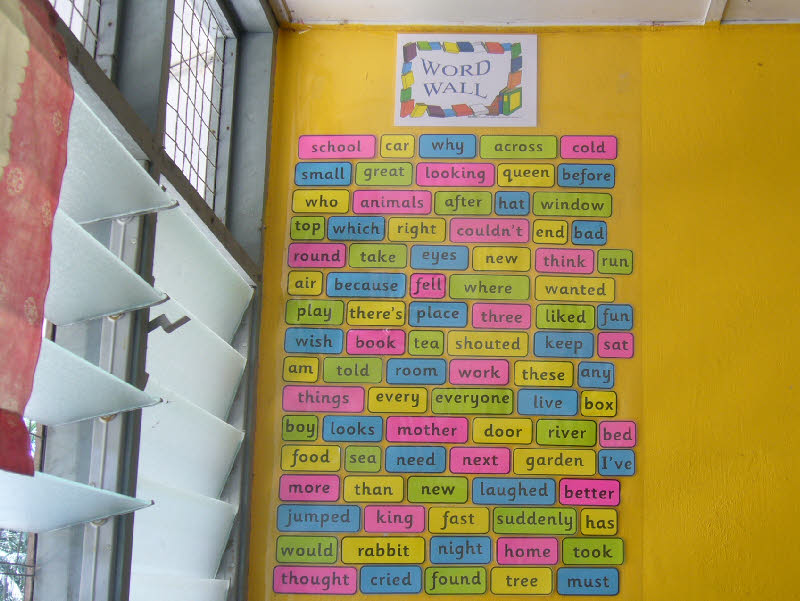 WORD
WALL
school car why across cold
small great looking queen before
who animals after hat window
top which right couldn't end bad
round take eyes new think run
air because fell where wanted
play there's place three liked fun
wish book tea shouted keep sat
am told room work these any
things every everyone live box
boy looks mother door river bed
food sea need next garden I've
more than new laughed better
jumped king fast suddenly has
would rabbit night home took
thought cried found tree must